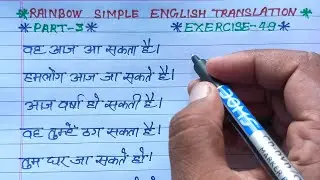 *RAINBOW SIMPLE ENGLISH TRANSLATION
*PART-3 *EXERCISE-49
वह आज आ सकता है।
हमलोग आज जा सकते हैं।
आज वर्षा हो सकती है।
वह तुम्हें ठग सकता है।
तुम घर जा सकते हो।